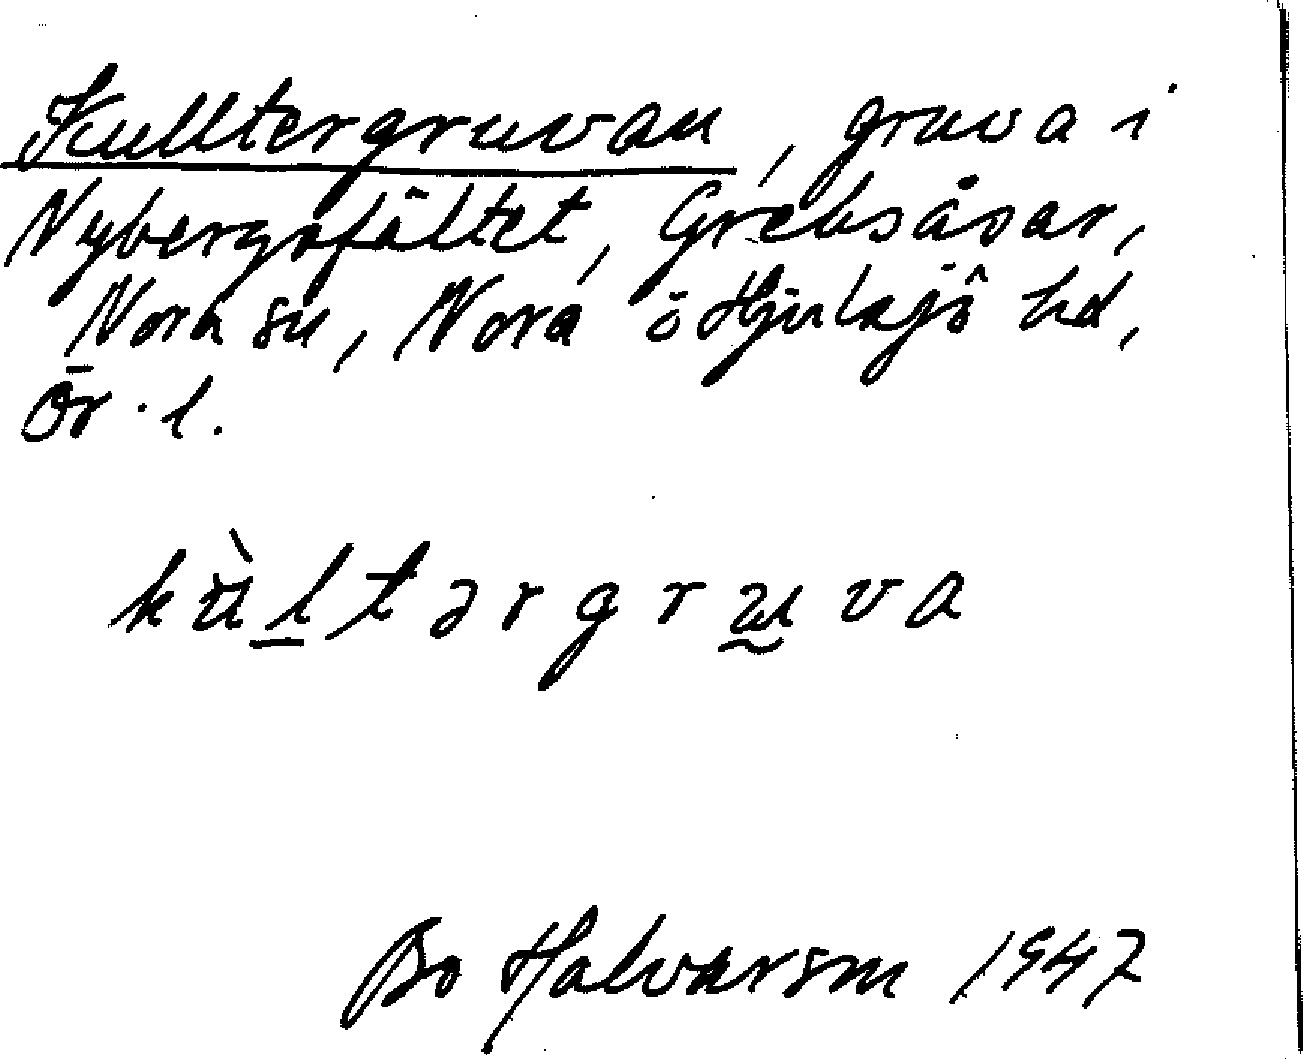 Kulltergruvan, gruva i
Nybergsfältet, Greksåsar,
Nora sn, Nora ö Hjulsjö hd,
Ör. l.
kùltərgruva
Bo Halvarson 1947